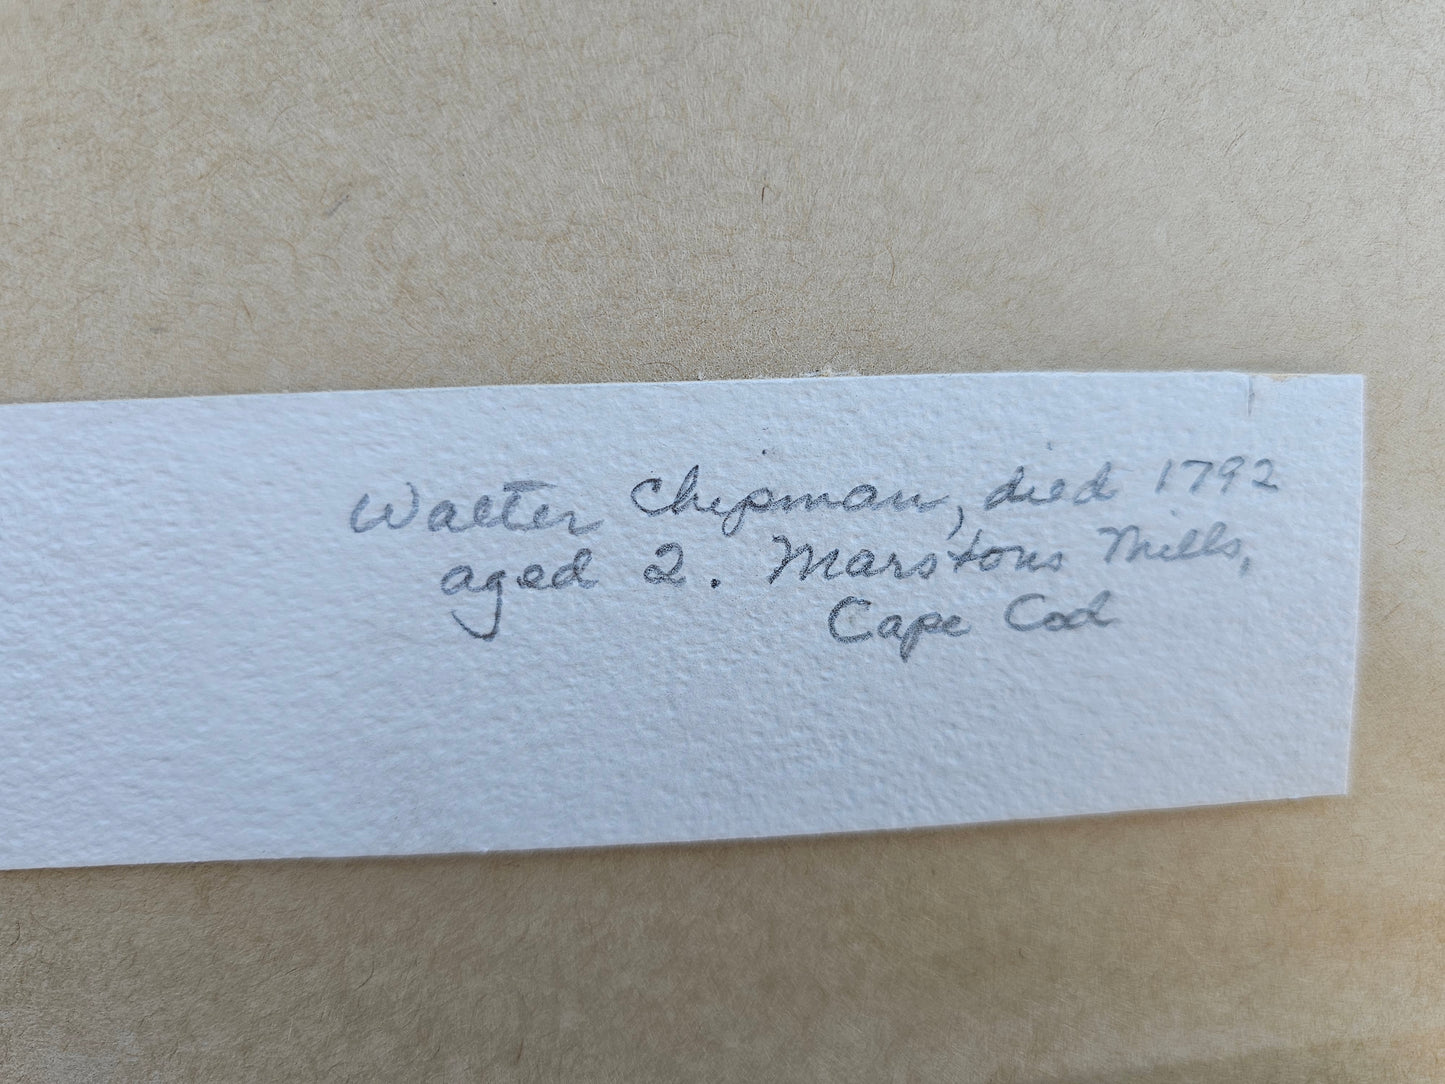 Walter Chipman, died 1792
aged 2. Marstons Mills,
Cape Cod